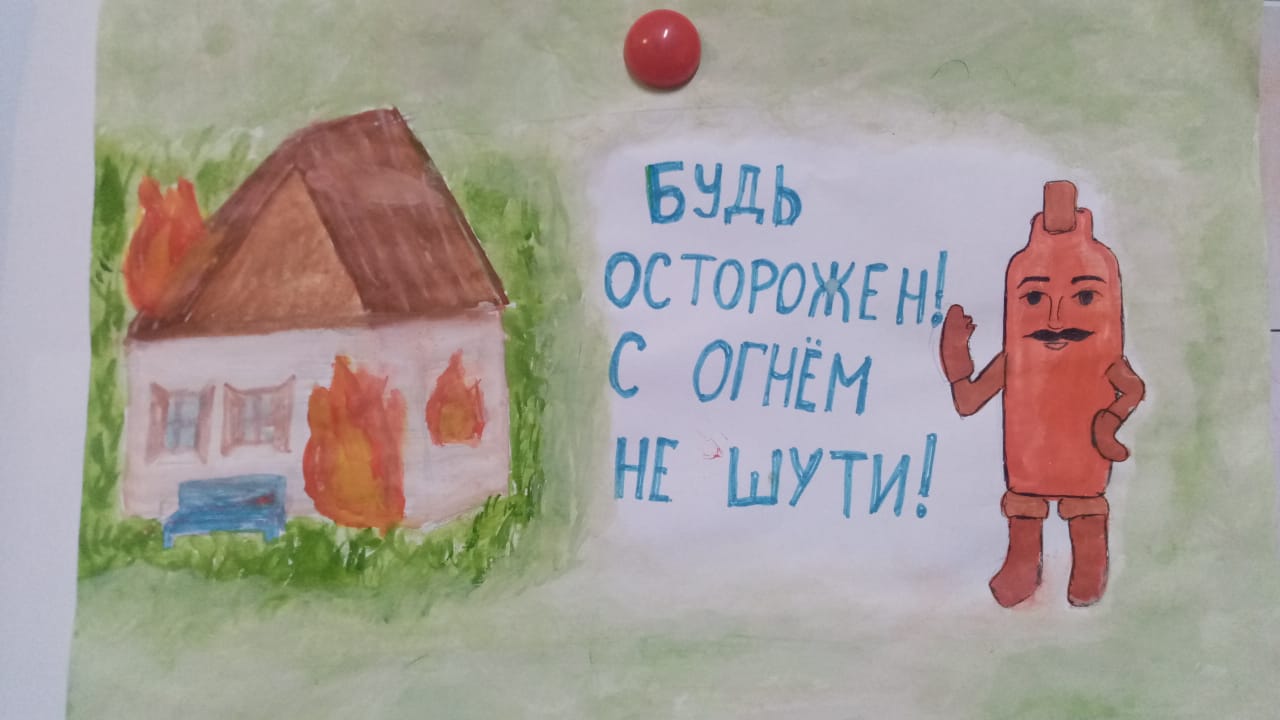 БУДЬ
ОСТОРОЖЕН!
С ОГНЁМ
НЕ ШУТИ!